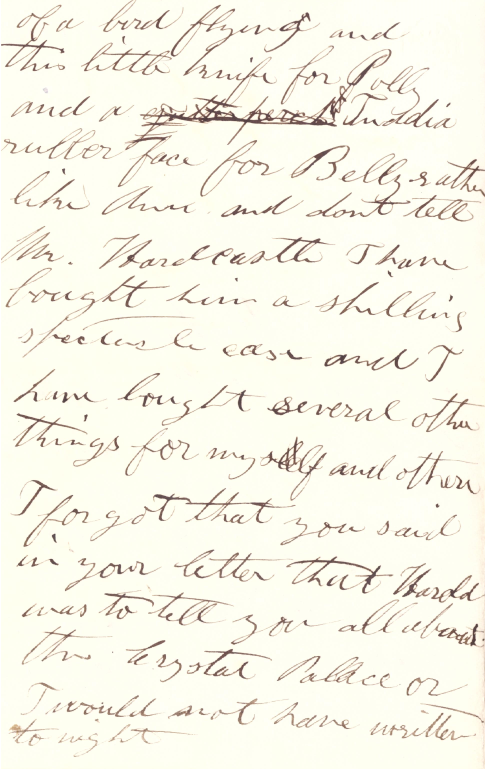 of a bird flying and
this little knife for Polly
and a Inddia
rubber face for Belly rather
like Ann and dont tell
Mr. Hardcastle I have
bought him a shilling
spectacle case and I
have bought several other
things for myself and others
I forgot that you said
in your letter that Harold
was to tell you all about
the Crystal Pallace or
I would not have written
to night